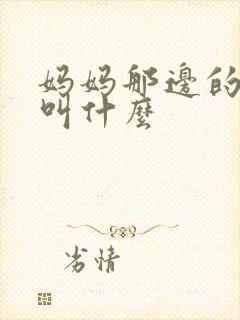 妈妈那边的
叫什麼
劣情